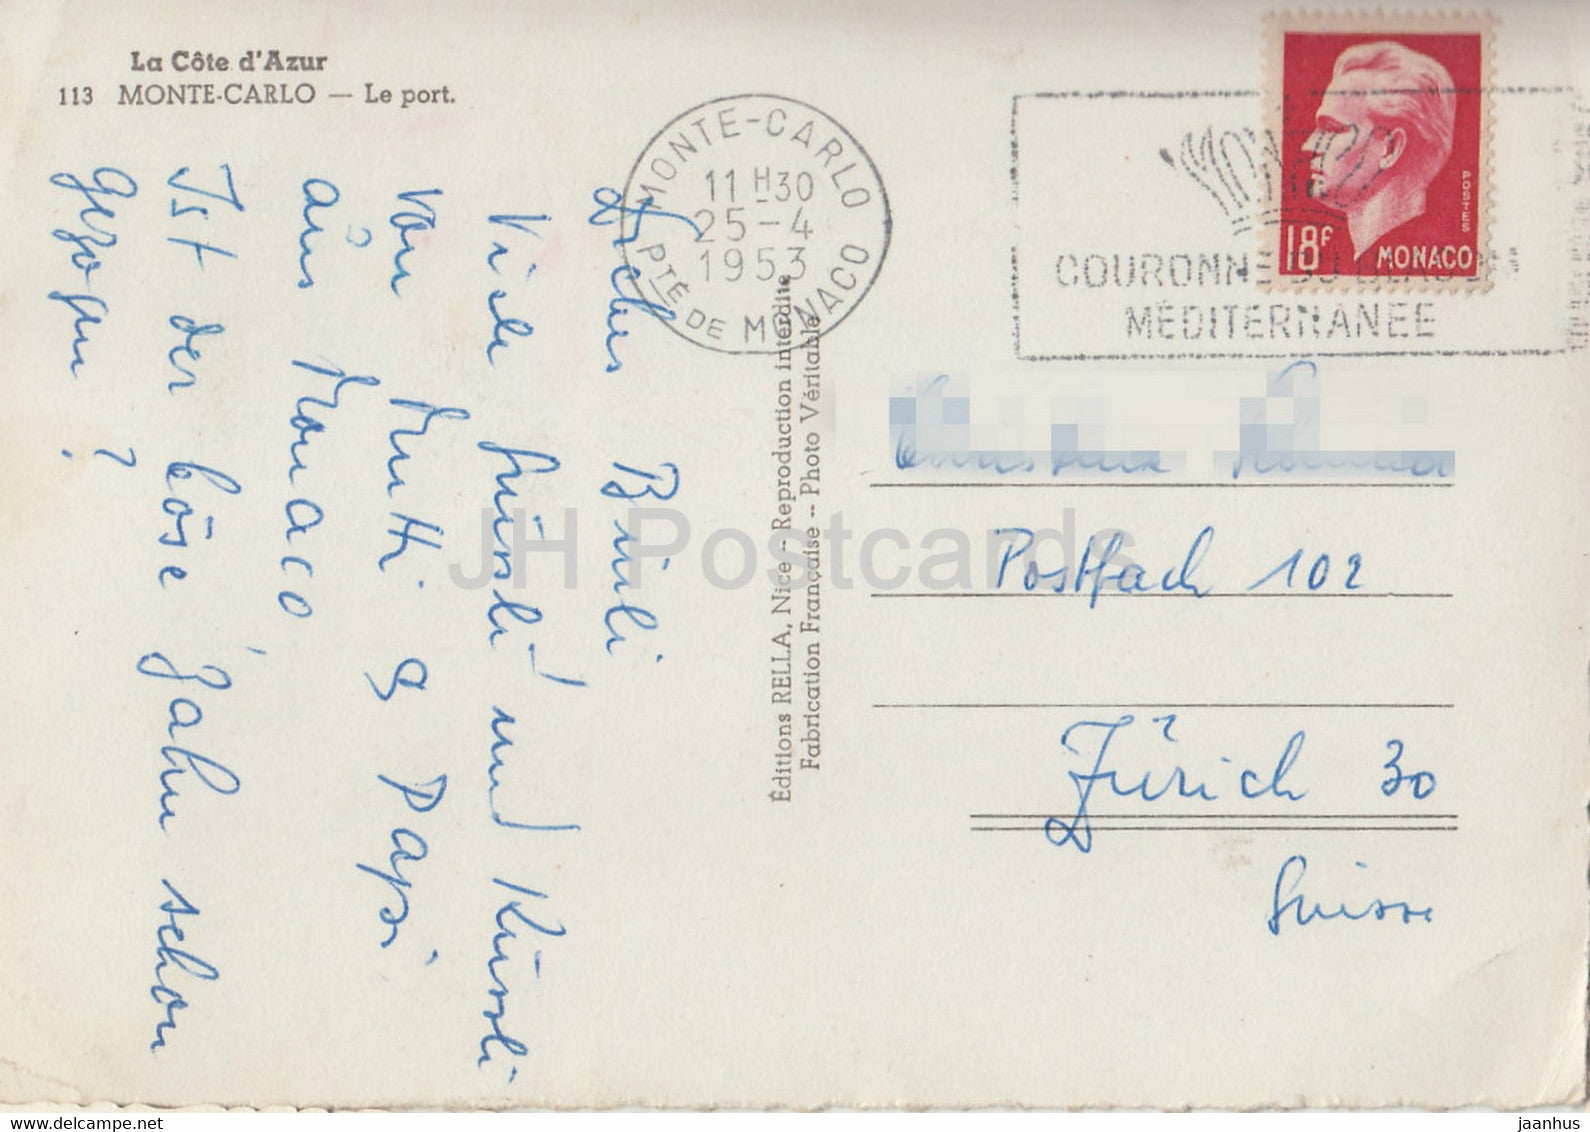 La Côte d'Azur
113 MONTE-CARLO — Le port.
MONTE-CARLO
11 H 30
25 - 4
1953
PTÉ DE MONACO
MONACO
COURONNE DU
MÉDITERRANÉE
POSTES
18F MONACO
Liebes Bürli
Viele Grüssli und Küssli
von Mutti & Papi
aus Monaco,
Ist der böse Zahn schon
gezogen ?
Éditions RELLA, Nice -- Reproduction interdite
Fabrication Française -- Photo Véritable
Postfach 102
Zürich 30
Suisse
JH Postcards
delcampe.net
jaanhus